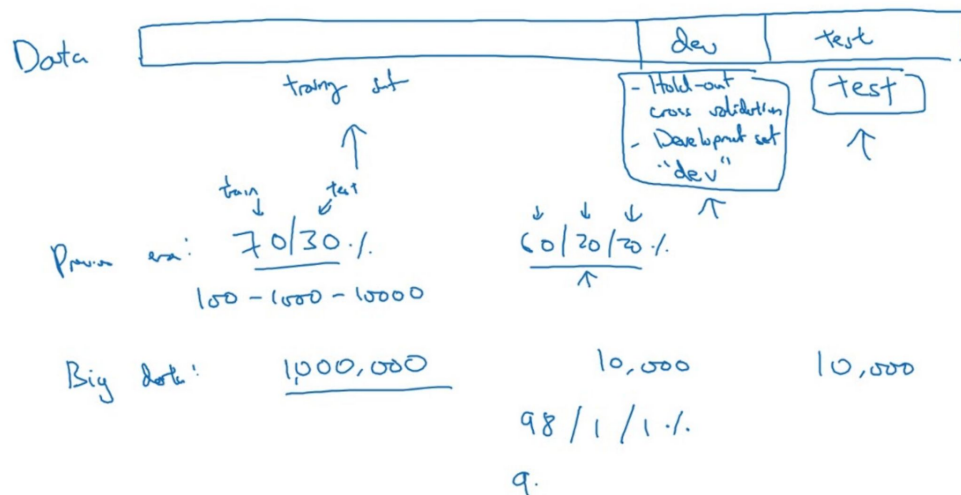 Data dev test
training set
- Hold-out
cross validation
- Development set
"dev"
test
train test
Previous era: 70/30 % 60/20/20 %
100 - 1000 - 10000
Big data: 1,000,000 10,000 10,000
98/1/1 %
9.